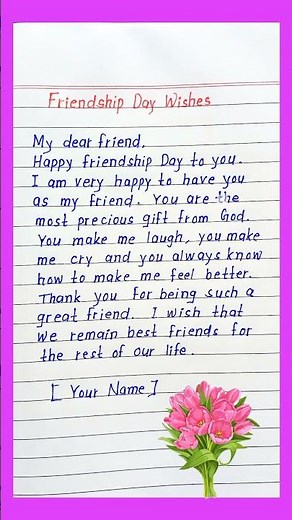 Friendship Day Wishes
My dear friend,
Happy friendship Day to you.
I am very happy to have you
as my friend. You are the
most precious gift from God.
You make me laugh, you make
me cry and you always know
how to make me feel better.
Thank you for being such a
great friend. I wish that
we remain best friends for
the rest of our life.
[ Your Name ]